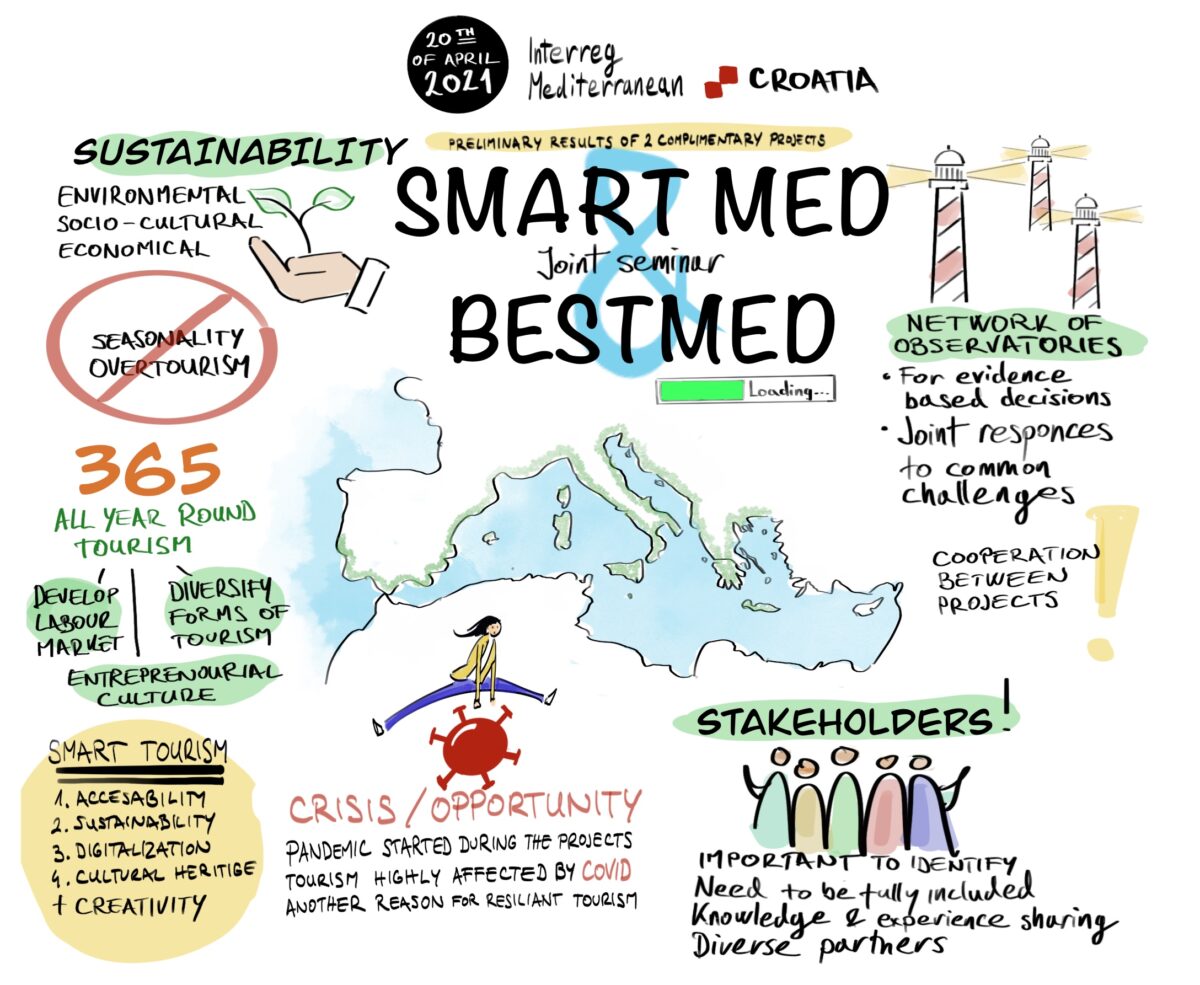 20TH
OF APRIL
2021
Interreg
Mediterranean
CROATIA
PRELIMINARY RESULTS OF 2 COMPLIMENTARY PROJECTS
SMART MED
&
Joint seminar
BESTMED
Loading...
SUSTAINABILITY
ENVIRONMENTAL
SOCIO-CULTURAL
ECONOMICAL
SEASONALITY
OVERTOURISM
365
ALL YEAR ROUND
TOURISM
DEVELOP
LABOUR
MARKET
DIVERSIFY
FORMS OF
TOURISM
ENTREPRENOURIAL
CULTURE
SMART TOURISM
1. ACCESABILITY
2. SUSTAINABILITY
3. DIGITALIZATION
4. CULTURAL HERITIGE
+ CREATIVITY
CRISIS / OPPORTUNITY
PANDEMIC STARTED DURING THE PROJECTS
TOURISM HIGHLY AFFECTED BY COVID
ANOTHER REASON FOR RESILIANT TOURISM
NETWORK OF
OBSERVATORIES
• For evidence
based decisions
• Joint responces
to common
challenges
COOPERATION
BETWEEN
PROJECTS
!
STAKEHOLDERS!
IMPORTANT TO IDENTIFY
Need to be fully included
Knowledge & experience sharing
Diverse partners